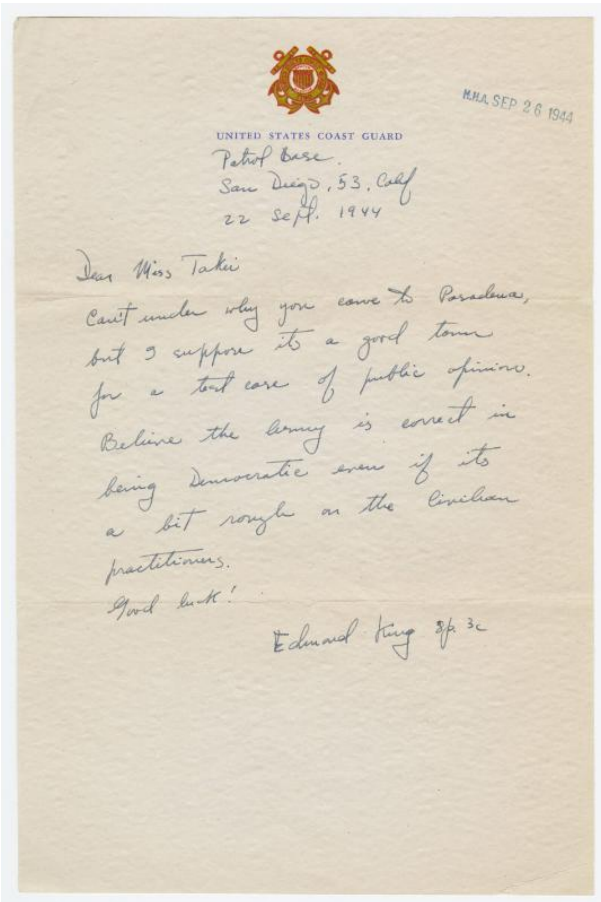 H.H.A. SEP 26 1944
UNITED STATES COAST GUARD
Patrol Base.
San Diego, 53, Calif
22 Sept. 1944
Dear Miss Takei
Can't under why you come to Pasadena,
but I suppose its a good town
for a test case of public opinion.
Believe the Army is correct in
being Democratic even if its
a bit rough on the Civilian
practitioners.
Good luck!
Edmond King Sp. 3c